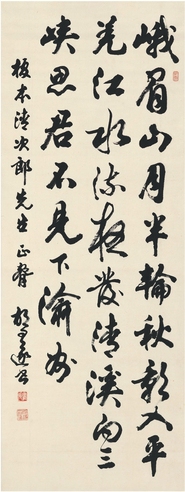 峨眉山月半輪秋影入平
羌江水流夜發清溪向三
峽思君不見下渝州
坂本清次郎先生正腎 胡漢民